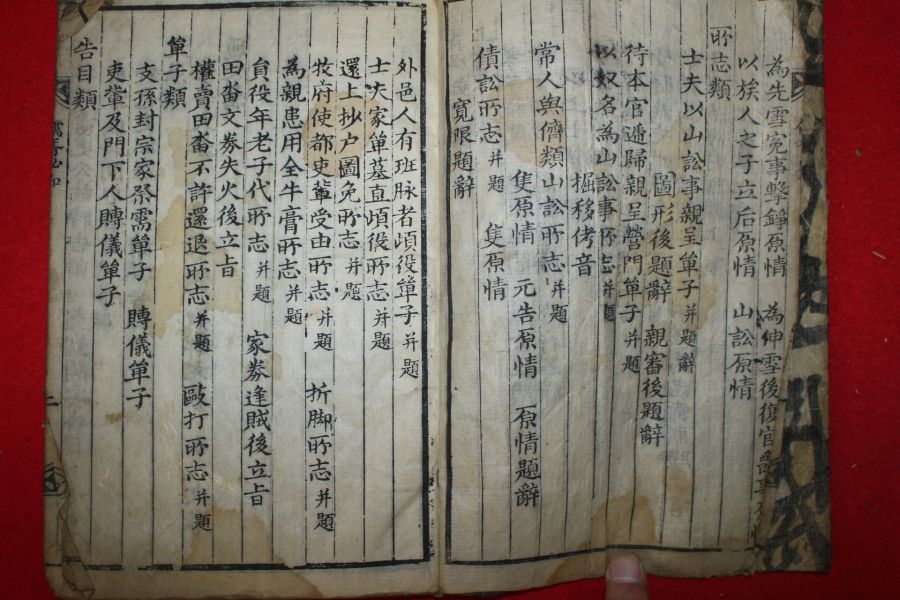 為先雪冤事擊錚原情 為伸雪後復官爵事
以族人之子立后原情 山訟原情
所志類
士夫以山訟事親呈單子 并題辭
圖形後題辭 親審後題辭
待本官遞歸親呈營門單子 并題
以奴名為山訟事所志 并題
掘移侤音
常人與儕類山訟所志 并題
隻原情 元告原情 原情題辭
債訟所志 并題 隻原情
寬限題辭
外邑人有班脉者頉役單子 并題
士夫家單墓直頉役所志 并題
還上抄户圖免所志 并題
牧府使都吏軰受由所志 并題 折脚所志 并題
為親患用全牛膏所志 并題
貟役年老子代所志 并題 家券逢賊後立旨
田畓文券失火後立旨
權賣田畓不許還退所志 并題 毆打所志 并題
單子類
支孫封宗家祭需單子 賻儀單子
吏軰及門下人賻儀單子
告目類
儒胥必知
二